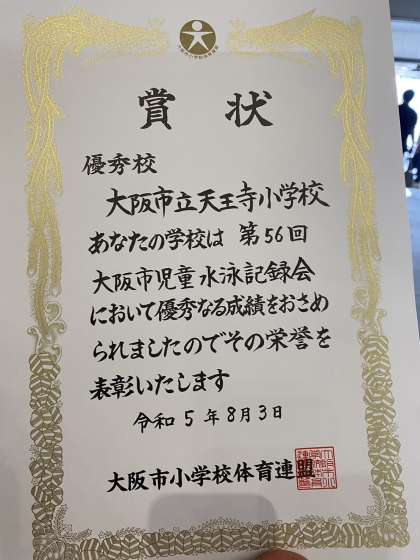 賞状
優秀校
大阪市立天王寺小学校
あなたの学校は 第56回
大阪市児童水泳記録会
において優秀なる成績をおさめ
られましたのでその栄誉を
表彰いたします
令和5年8月3日
大阪市小学校体育連盟